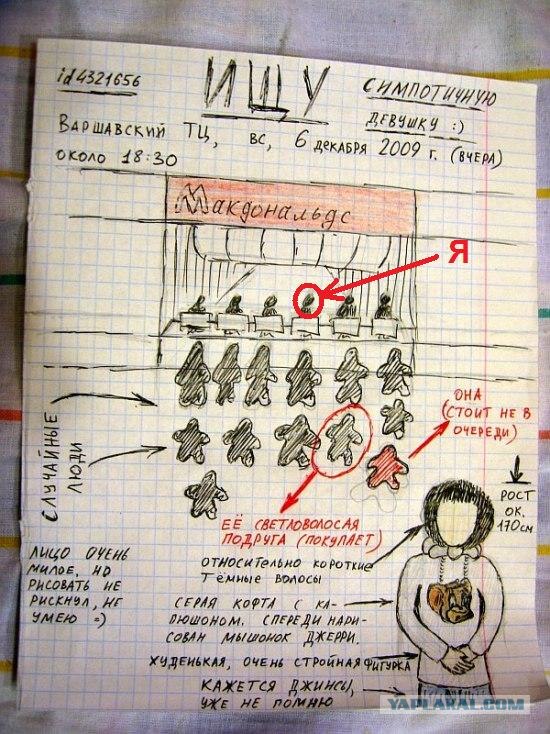 id4321656
ИЩУ
СИМПОТИЧНУЮ
ДЕВУШКУ :)
ВАРШАВСКИЙ ТЦ, ВС, 6 ДЕКАБРЯ 2009 Г. (ВЧЕРА)
ОКОЛО 18:30
Макдональдс
Я
ОНА
(СТОИТ НЕ В
ОЧЕРЕДИ)
СЛУЧАЙНЫЕ
ЛЮДИ
ЕЁ СВЕТЛОВОЛОСАЯ
ПОДРУГА (ПОКУПАЕТ)
РОСТ
ОК.
170СМ
ЛИЦО ОЧЕНЬ
МИЛОЕ, НО
РИСОВАТЬ НЕ
РИСКНУЛ, НЕ
УМЕЮ =)
ОТНОСИТЕЛЬНО КОРОТКИЕ
ТЁМНЫЕ ВОЛОСЫ
СЕРАЯ КОФТА С КА-
ПЮШОНОМ. СПЕРЕДИ НАРИ-
СОВАН МЫШОНОК ДЖЕРРИ.
ХУДЕНЬКАЯ, ОЧЕНЬ СТРОЙНАЯ ФИГУРКА
КАЖЕТСЯ ДЖИНСЫ,
УЖЕ НЕ ПОМНЮ
YAPLAKAL.COM